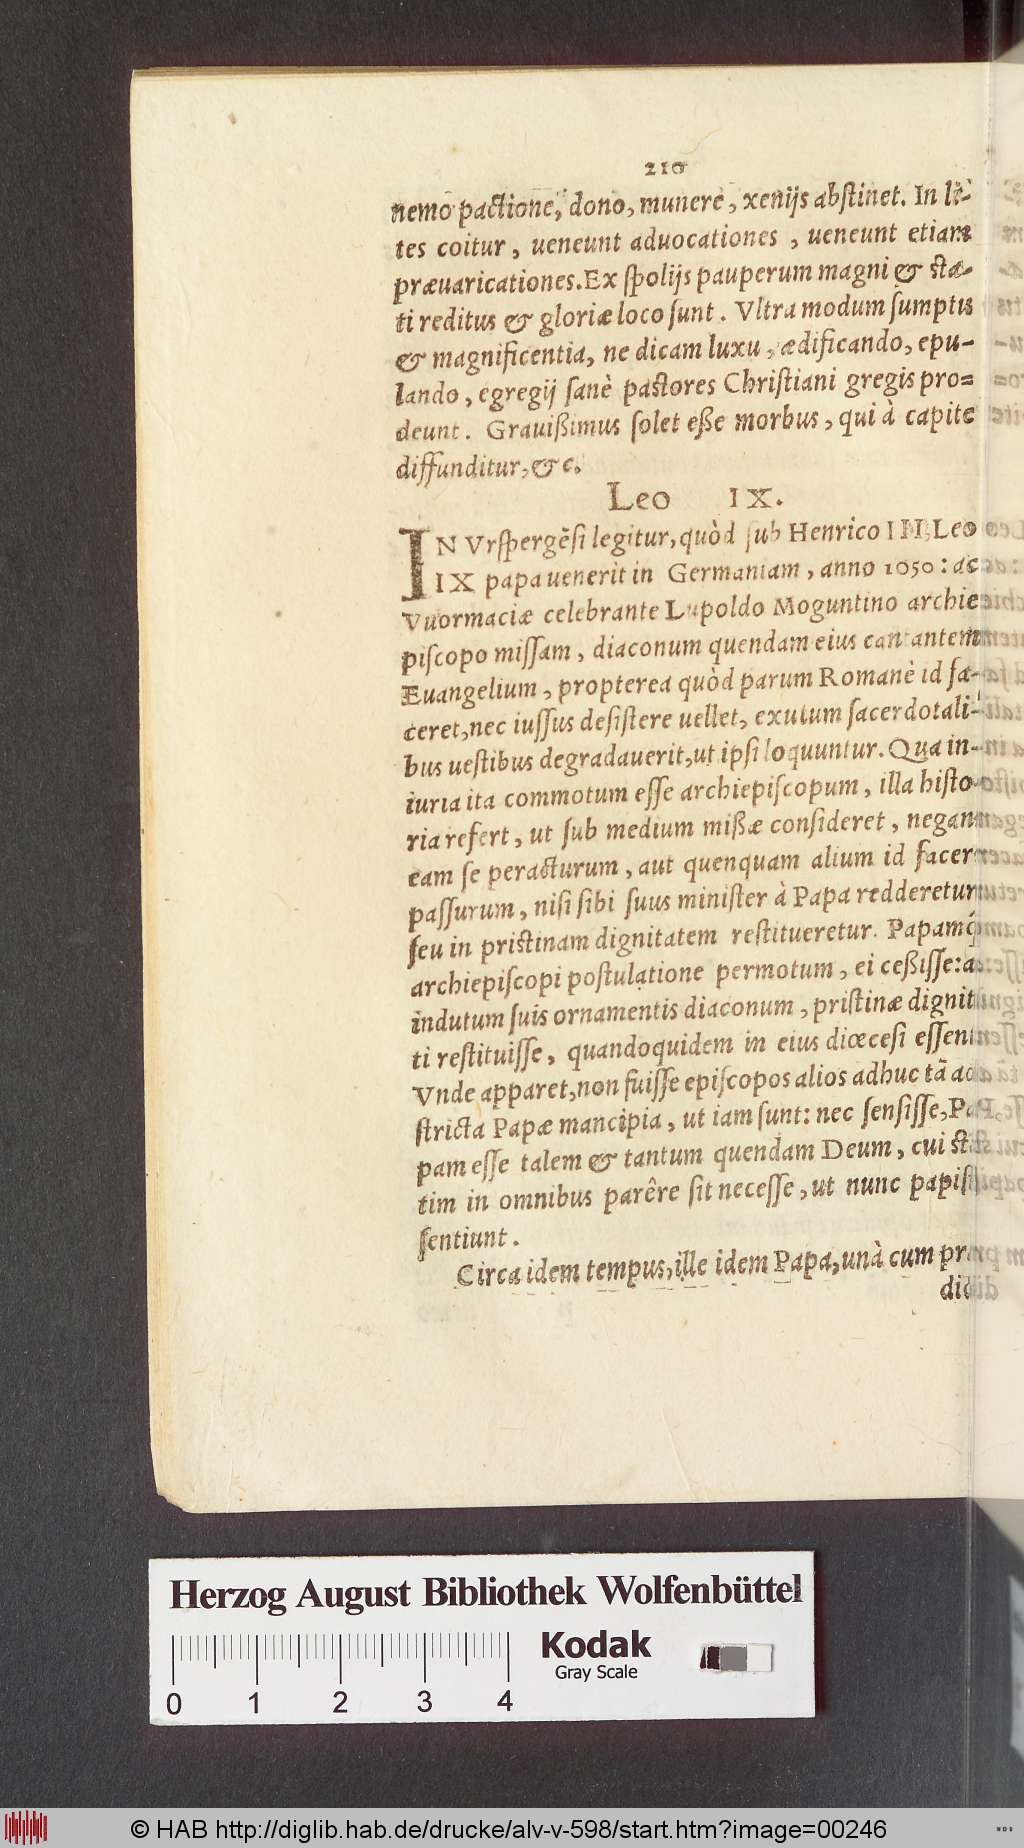 210
nemo pactione, dono, munere, xenijs abstinet. In li-
tes coitur, ueneunt aduocationes, ueneunt etiam
præuaricationes. Ex spolijs pauperum magni & sta-
ti reditus & gloriæ loco sunt. Vltra modum sumptus
& magnificentia, ne dicam luxu, ædificando, epu-
lando, egregij sanè pastores Christiani gregis pro=
deunt. Grauißimus solet eße morbus, qui à capite
diffunditur, & c.
Leo IX.
IN Vrspergẽsi legitur, quòd sub Henrico III, Leo
IX papa uenerit in Germaniam, anno 1050: ac
Vuormaciæ celebrante Lupoldo Moguntino archie
piscopo missam, diaconum quendam eius cantantem
Euangelium, propterea quòd parum Romanè id fa-
ceret, nec iussus desistere uellet, exutum sacerdotali-
bus uestibus degradauerit, ut ipsi loquuntur. Qua in-
iuria ita commotum esse archiepiscopum, illa histo-
ria refert, ut sub medium mißæ consideret, negans
eam se peracturum, aut quenquam alium id facere
passurum, nisi sibi suus minister à Papa redderetur
seu in pristinam dignitatem restitueretur. Papamq́
archiepiscopi postulatione permotum, ei ceßisse: ac
indutum suis ornamentis diaconum, pristinæ dignita
ti restituisse, quandoquidem in eius diœcesi essent.
Vnde apparet, non fuisse episcopos alios adhuc tã ad
stricta Papæ mancipia, ut iam sunt: nec sensisse, Pa-
pam esse talem & tantum quendam Deum, cui sta
tim in omnibus parêre sit necesse, ut nunc papistæ
sentiunt.
Circa idem tempus, ille idem Papa, unà cum præ
di
Herzog August Bibliothek Wolfenbüttel
Kodak
Gray Scale
0 1 2 3 4
© HAB http://diglib.hab.de/drucke/alv-v-598/start.htm?image=00246